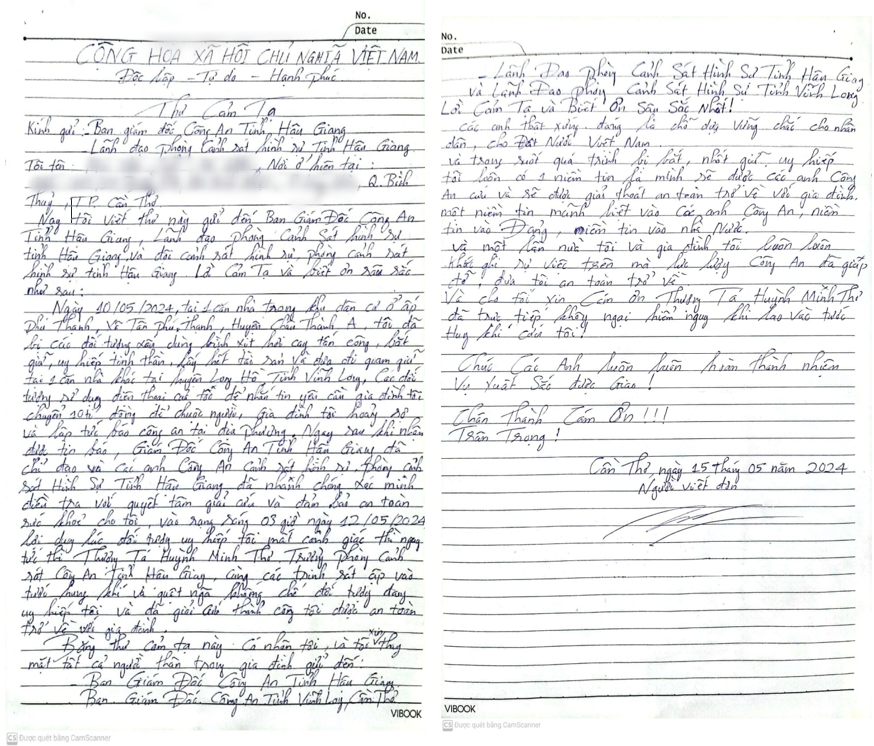 No.
Date
CỘNG HOÀ XÃ HỘI CHỦ NGHĨA VIỆT NAM
Độc lập - Tự do - Hạnh phúc
Thư Cảm Tạ
Kính gửi: - Ban giám đốc Công An Tỉnh Hậu Giang
- Lãnh đạo phòng Cảnh sát hình sự Tỉnh Hậu Giang
Tôi tên: , Nơi ở hiện tại:
, Q. Bình
Thuỷ, TP. Cần Thơ
Nay tôi viết thư này gửi đến Ban Giám Đốc Công An
Tỉnh Hậu Giang, Lãnh đạo phòng Cảnh Sát hình sự
tỉnh Hậu Giang, và đội cảnh sát hình sự, phòng cảnh sát
hình sự tỉnh Hậu Giang Lời Cảm Tạ và biết ơn sâu sắc
như sau:
Ngày 10/05/2024, tại 1 căn nhà trong khu dân cư ở ấp
Phú Thạnh, Xã Tân Phú Thạnh, Huyện Châu Thành A, tôi đã
bị các đối tượng xấu dùng bình xịt hơi cay tấn công, bắt
giữ, uy hiếp tinh thần, lấy hết tài sản và đưa đi quản giữ
tại 1 căn nhà khác tại huyện Long Hồ, Tỉnh Vĩnh Long, Các đối
tượng sử dụng điện thoại của tôi để nhắn tin yêu cầu gia đình tôi
chuyển 10 tỷ đồng để chuộc người, Gia đình tôi hoảng sợ
và lập tức báo công an tại địa phương, Ngay sau khi nhận
được tin báo, Giám Đốc Công An Tỉnh Hậu Giang đã
chỉ đạo và các anh Công An cảnh sát hình sự, phòng cảnh
sát Hình Sự Tỉnh Hậu Giang đã nhanh chóng xác minh
điều tra với quyết tâm giải cứu và đảm bảo an toàn
sức khoẻ cho tôi, vào rạng sáng 03 giờ ngày 12/05/2024
lợi dụng lúc đối tượng uy hiếp tôi mất cảnh giác thì ngay
tức thì Thượng Tá Huỳnh Minh Thư, Trưởng phòng Cảnh
sát Công An Tỉnh Hậu Giang, cùng các trinh sát áp vào
tước hung khí và quật ngã khống chế đối tượng đang
uy hiếp tôi và đã giải cứu thành công tôi được an toàn
trở về với gia đình
Bằng thư cảm tạ này Cá nhân tôi, và tôi xin thay
mặt tất cả người thân trong gia đình gửi đến:
- Ban Giám Đốc Công An Tỉnh Hậu Giang
Ban Giám Đốc Công An Tỉnh Vĩnh Long, Cần Thơ
VIBOOK
CS Được quét bằng CamScanner
No.
Date
- Lãnh Đạo phòng Cảnh Sát Hình Sự Tỉnh Hậu Giang
và Lãnh Đạo phòng Cảnh Sát Hình Sự Tỉnh Vĩnh Long
Lời Cảm Tạ và Biết Ơn Sâu Sắc Nhất!
Các anh thật xứng đáng là chỗ dựa vững chắc cho nhân
dân, cho Đất Nước Việt Nam
và trong suốt quá trình bị bắt, nhốt giữ, uy hiếp
tôi luôn có 1 niềm tin là mình sẽ được các anh Công
An cứu và sẽ được giải thoát an toàn trở về với gia đình.
một niềm tin mãnh liệt vào Các anh Công An, niềm
tin vào Đảng, niềm tin vào nhà Nước.
Và một lần nữa tôi và gia đình tôi luôn luôn
khắc ghi sự việc trên mà lực lượng Công An đã giúp
đỡ, đưa tôi an toàn trở về
Và cho tôi xin Cám ơn Thượng Tá Huỳnh Minh Thư
đã trực tiếp không ngại hiểm nguy khi lao vào tước
Hung khí cứu tôi!
Chúc Các Anh luôn luôn hoàn thành nhiệm
Vụ Xuất Sắc được Giao!
Chân Thành Cám Ơn!!!
Trân Trọng!
Cần Thơ, ngày 15 tháng 05 năm 2024
Người viết đơn
VIBOOK
CS Được quét bằng CamScanner